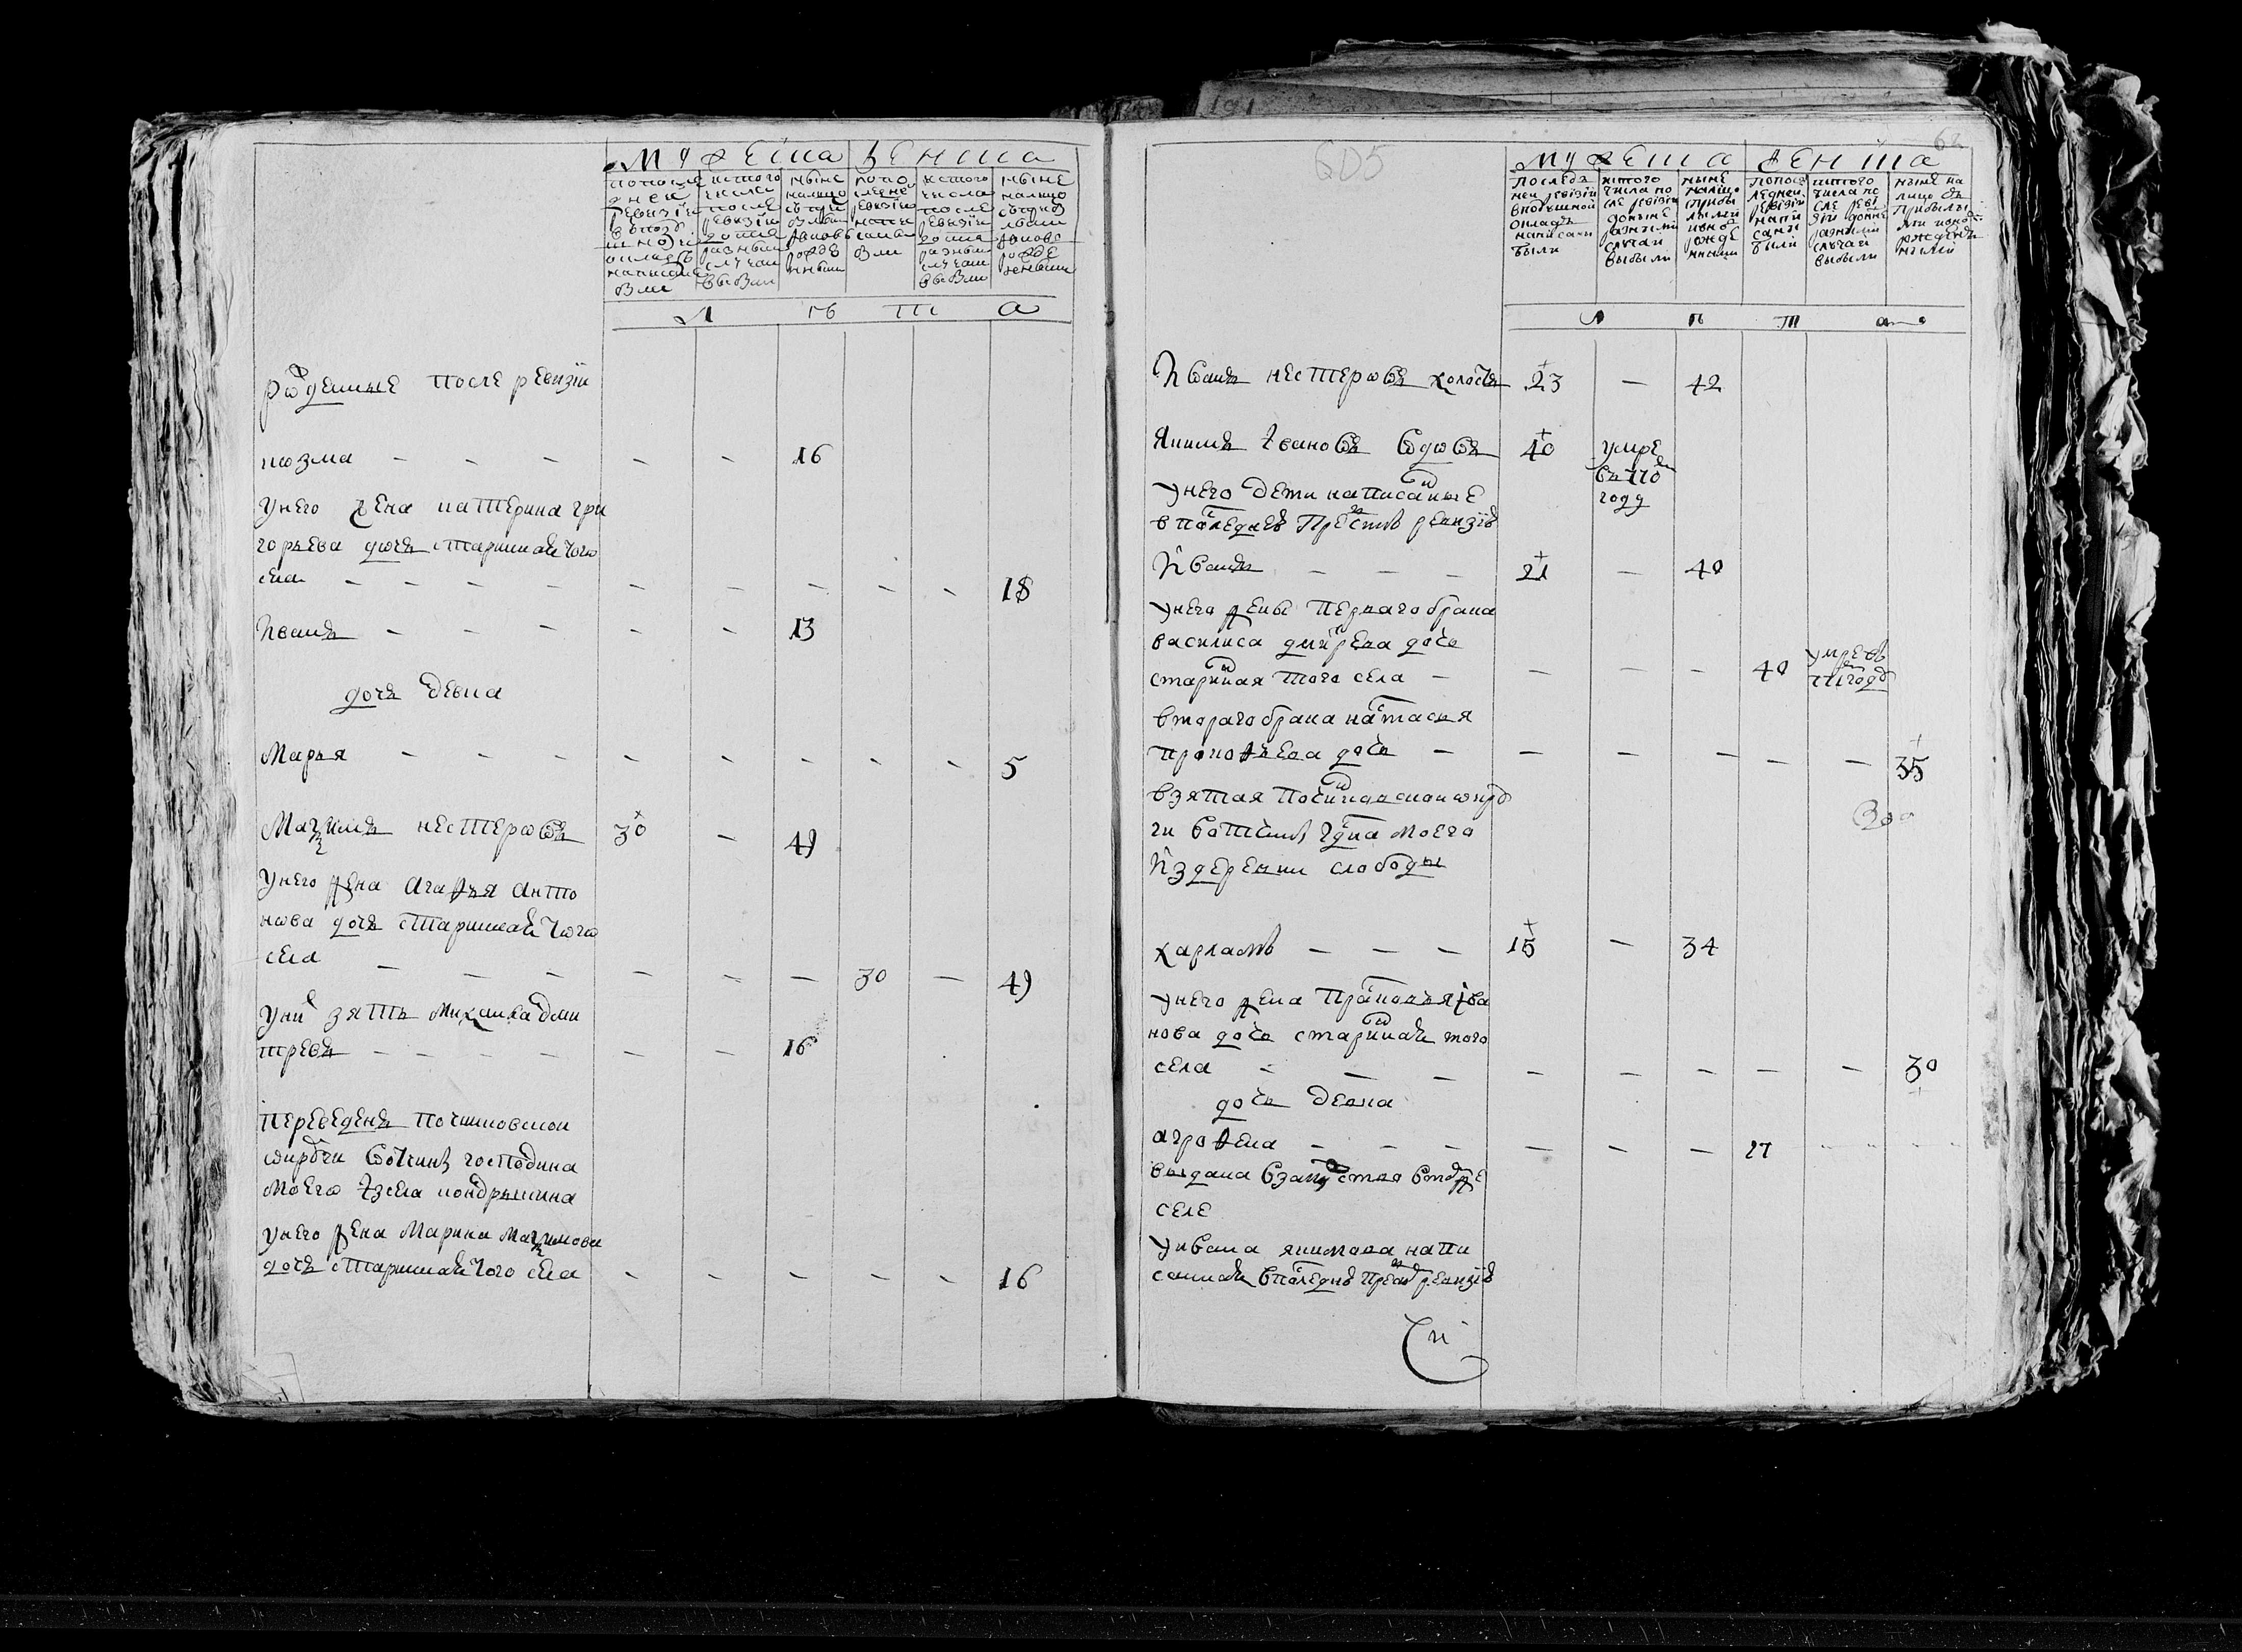 мужеска женска
по после
дней
ревизии
в подў
шной
окладъ
написаны
были
ис того
числа
после
ревизии
до ныне
разными
случаи
выбыли
ныне
налицо
съ при
былыми
и вновь
рожде
нными
по по
следне
ревизии
напи
саны
были
ис того
числа
после
ревизии
до ныне
разными
случаи
выбыли
ныне
налицо
съ прибы
лыми
и вновь
рожде
нными
л ѣ т а
рожденные после ревизїи
козма - - - - - 16
у него жена катерина гри
горьева дочь старинная того
села - - - - - - - - - 18
Иванъ - - - - - 13
дочь девка
Марья - - - - - - - - 5
Маѯимъ нестеровъ 30 - 49
у него жена агафья анто
нова дочь старинная того
села - - - - - - 30 - 49
у них зять михаила дми
тревъ - - - - - - 16
переведенъ починковской
округи вотчины господина
моего из села кондрыкина
у него жена Марина Маѯимова
дочь старинная того села - - - - - 16
605
62
мужеска женска
последъ
ней ревизїи
в подушной
окладъ
написаны
были
ис того
числа по
сле ревизїи
до ныне
разными
случаи
выбыли
ныне
на лицо
с прибы
лыми
и вновь
рожде
нными
по посл
ледней
ревизїи
напи
саны
были
ис того
числа по
сле реви
зїи до ныне
разными
случаи
выбыли
ныне на
лицо съ
прибылы
ми и вновь
рожден
ными
л ѣ т а
Иванъ нестеровъ холостъ 23 - 42
Якимъ Ивановъ вдовъ 40 умре
въ 770м
году
у него дети написаные
в последней пред симъ ревизїи
Иванъ - - - 21 - 40
у него жены перваго брака
василиса дмитрева дочь
старинная того села - - - - 40 умре въ
годѣ
втораго брака настасья
прокофьева дочь - - - - - - 35
взятая починковской округ
ги вотчины гдна моего
Из деревни слободы
харламъ - - - 15 - 34
у него жена прасковья ива
нова дочь старинная того
села - - - - - - - - 30
дочь девка
агрофена - - - - - - 17 - - - -
выдана взамужство в том же
селе
у ивана якимова напи
санная в последней пред сим ревизїи